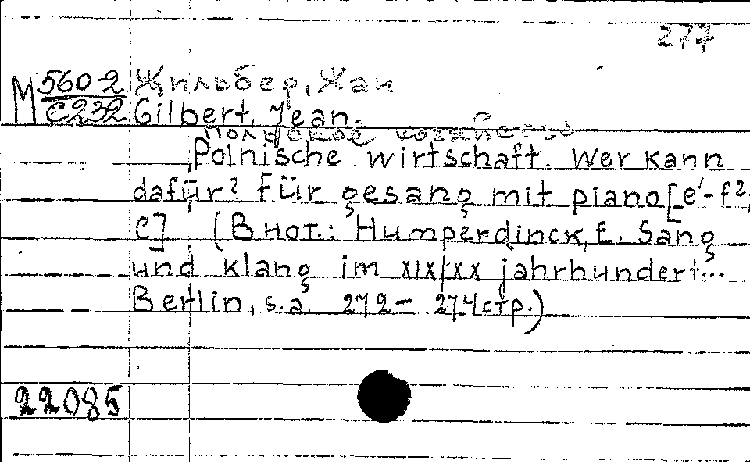 277
М 560-2 Жильбер, Жан
C232 Gilbert, Jean.
Польское хозяйство
Polnische wirtschaft. Wer kann
dafür? Für gesang mit piano [e'-f²;
C] (В нот.: Humperdinck, E. Sang
und klang im XIX/XX jahrhundert...
Berlin, s.a. 272-274 стр.)
22085